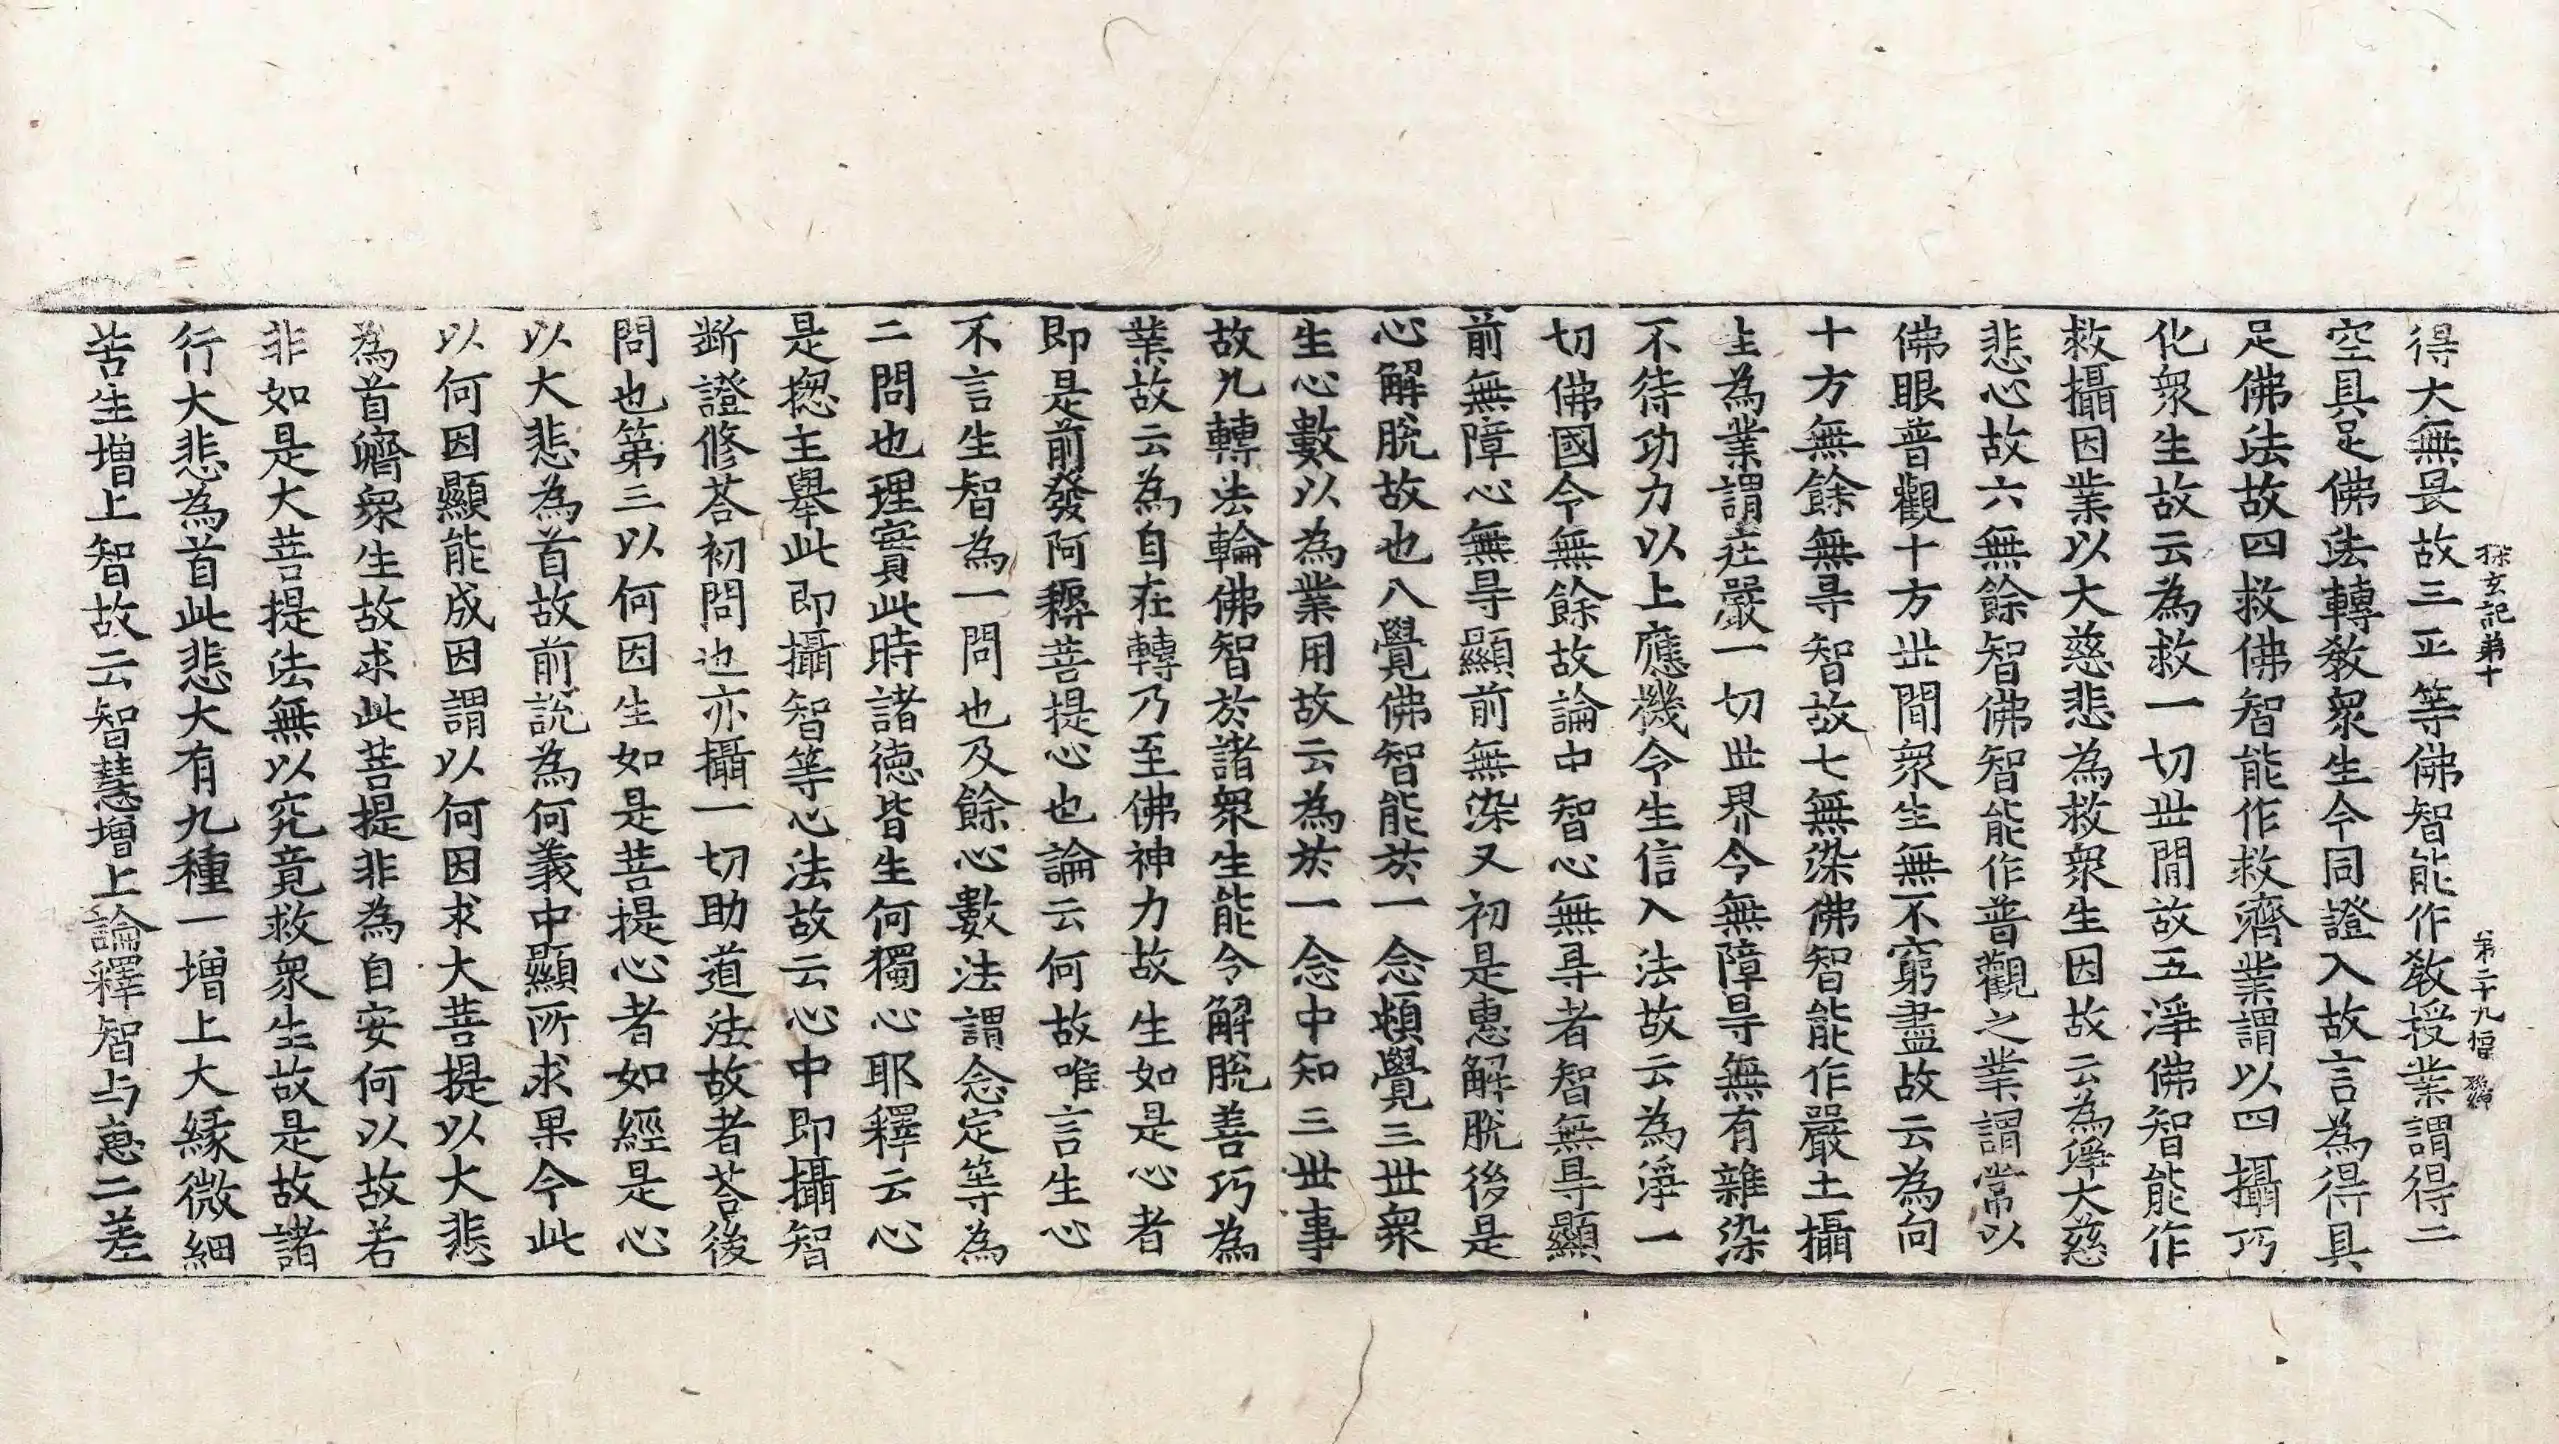 探玄記第十　第二十九幅
得大無畏故三正等佛智能作教授業謂得二
空具足佛法轉教衆生令同證入故言為得具
足佛法故四救佛智能作救濟業謂以四攝巧
化衆生故云為救一切世間故五淨佛智能作
救攝因業以大慈悲為救衆生因故云為淨大慈
悲心故六無餘智佛智能作普觀之業謂常以
佛眼普觀十方世間衆生無不窮盡故云為向
十方無餘無㝵智故七無染佛智能作嚴土攝
生為業謂莊嚴一切世界令無障㝵無有雜染
不待功力以上應機令生信入法故云為淨一
切佛國令無餘故論中智心無㝵者智無㝵顯
前無障心無㝵顯前無染又初是惠解脫後是
心解脫故也八覺佛智能於一念頓覺三世衆
生心數以為業用故云為於一念中知三世事
故九轉法輪佛智於諸衆生能令解脫善巧為
業故云為自在轉乃至佛神力故生如是心者
即是前發阿耨菩提心也論云何故唯言生心
不言生智為一問也及餘心數法謂念定等為
二問也理實此時諸德皆生何獨心耶釋云心
是揔主舉此即攝智等心法故云心中即攝智
斷證修荅初問也亦攝一切助道法故者荅後
問也第三以何因生如是菩提心者如經是心
以大悲為首故前説為何義中顯所求果今此
以何因顯能成因謂以何因求大菩提以大悲
為首濟衆生故求此菩提非為自安何以故若
非如是大菩提法無以究竟救衆生故是故諸
行大悲為首此悲大有九種一增上大緣微細
苦生增上智故云智慧增上論釋智与惠二差